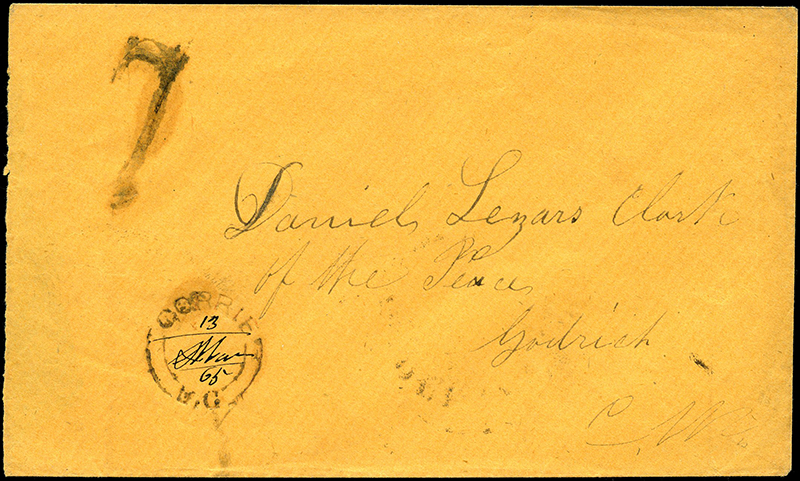 7
Daniel Lezars Clark
of the Peace
Godrich
C. W.
GORRIE
13
Mar
65
U.C